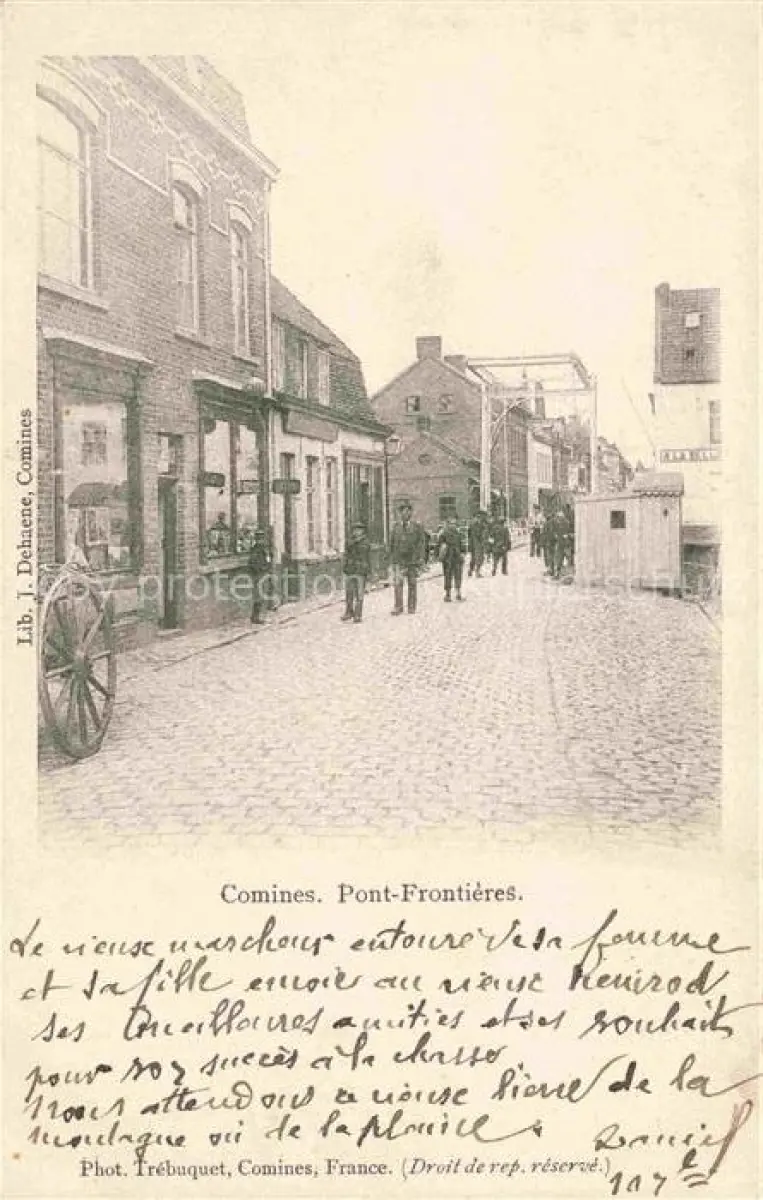 Lib. J. Dehaene, Comines
A LA BELLE
Comines. Pont-Frontières.
Le vieux marcheur entouré de sa femme
et sa fille envoie au vieux Nemrod
ses meilleures amitiés et ses souhaits
pour son succès à la chasse
nous attendons le vieux lièvre de la
montagne ou de la plaine.
Phot. Trébuquet, Comines, France. (Droit de rep. réservé.)